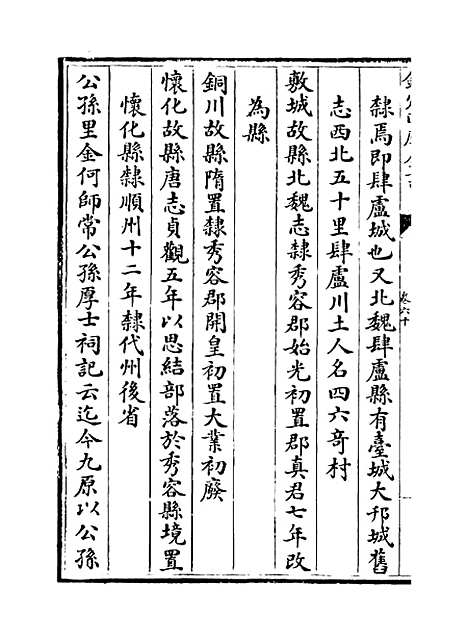 卷六十
隸焉即肆盧城也又北魏肆盧縣有臺城大邗城舊
志西北五十里肆盧川土人名四六竒村
敷城故縣北魏志隸秀容郡始光初置郡真君七年改
為縣
銅川故縣隋置隸秀容郡開皇初置大業初廢
懷化故縣唐志貞觀五年以思結部落於秀容縣境置
懷化縣隸順州十二年隸代州後省
公孫里金何師常公孫厚士祠記云迄今九原以公孫